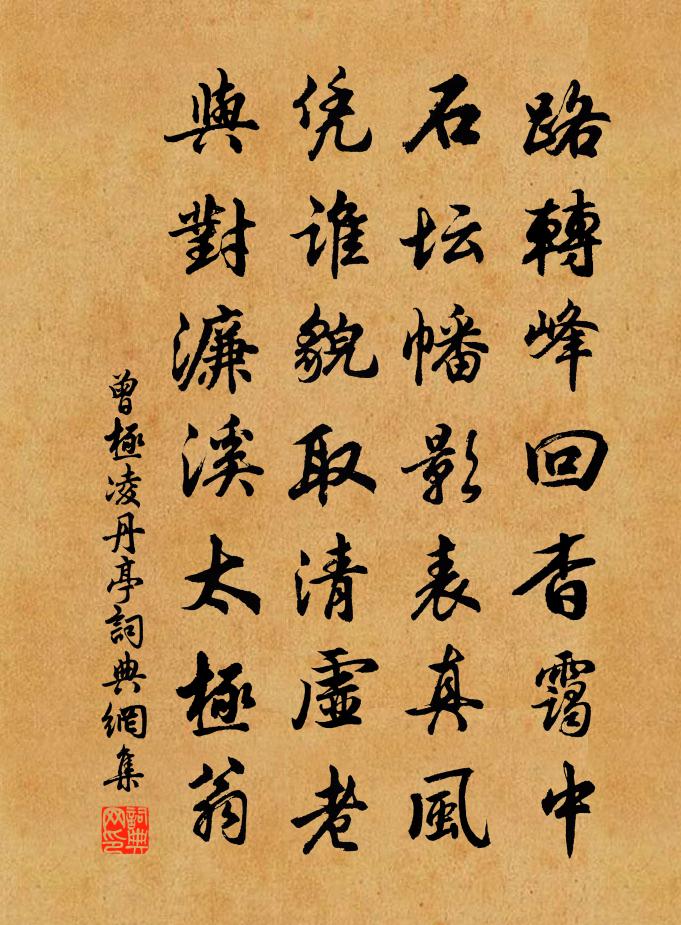 路轉峰回杳靄中
石坛幡影表真風
凭谁貌取清虛老
與對濂溪太極翁
曾極凌丹亭詞典網集
詞典网印